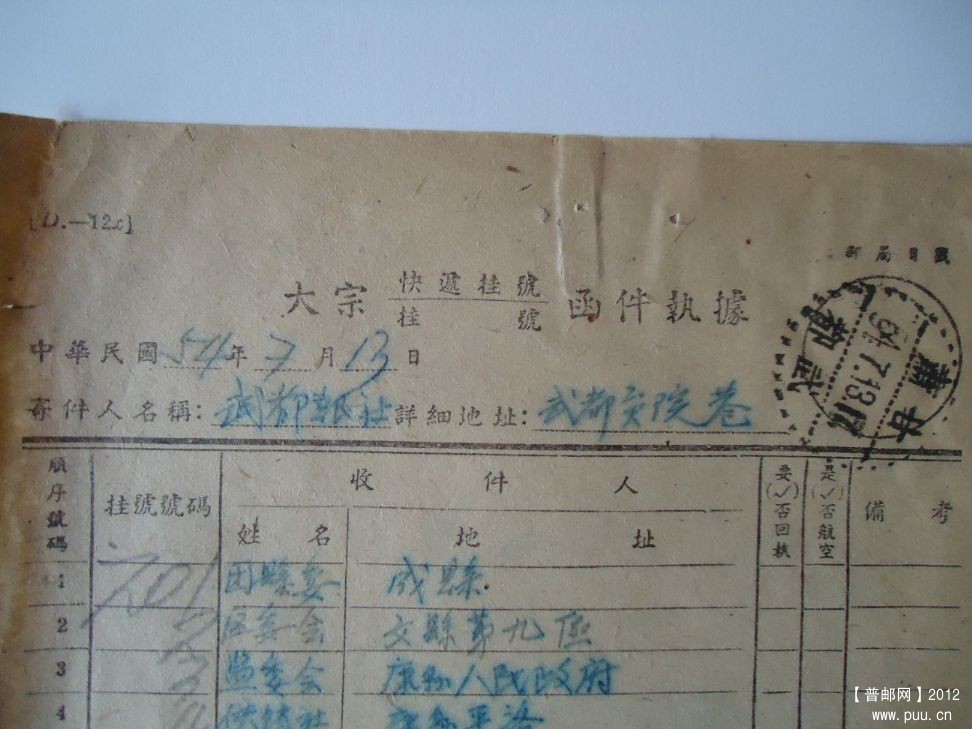 [D.—12c]
郵局日戳
大宗 快遞挂號 函件執據
挂號
中華民國54年7月13日
甘肅
54.7.13.17
武都
寄件人名稱:武都報社詳細地址:武都交院巷
順序號碼 挂號號碼 收件人 要(✓)否回執 是(✓)否航空 備考
姓名 地址
1 701 团縣委 成縣
2 2 区委会 文縣第九區
3 3 监委会 康县人民政府
4 4 供銷社
【普邮网】2012
www.puu.cn